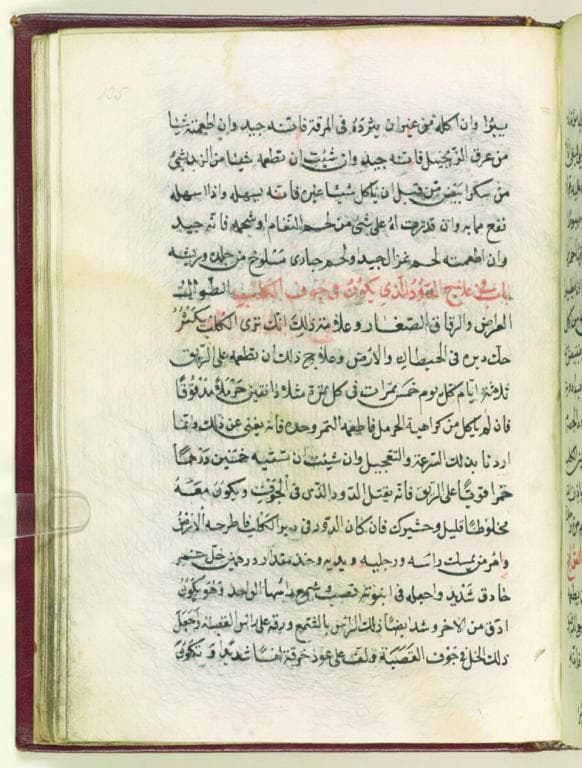 135
يبرا وان اكله من غير ان يثرده في المرقة فانه جيد وان اطعمته شيا
من عرق الزنجبيل فانه جيد وان شئت ان تطعمه شيا من الزبد شئ
من سكر ابيض من قبل ان ياكل شيئا غيره فانه يسهله واذا اسهله
نفع مما به وان قدرت له على شئ من لحم النعام او شحمه فانه جيد
وان اطعمته لحم غزال جيد ولحم حبارى مسلوخ من جلده وريشه
باب في علاج الدود الذي يكون في جوف الكلب الطوال
العراض والرقاق الصغار وعلامة ذلك انك ترى الكلب يكثر
حك دبره في الحيطان والارض وعلاج ذلك ان تطعمه على الريق
ثلاثة ايام كل يوم خمس تمرات في كل تمرة مثلا دانقين حرملا مدقوقا
فان لم ياكل من كراهية الحرمل فاطعمه التمر وحده فانه يغني عن ذلك وانما
اردنا بذلك السرعة والتعجيل وان شئت ان تسقيه خمسين درهما
خمرا قويا على الريق فانه يقتل الدود الذي في الجوف ويكون معه
مخلوطا قليل وحشيرك فان كان الدود في دبر الكلب فاطرحه الارض
وامر من يمسك راسه ورجليه ويديه وخذ مقدار درهمين خل خمر
حاذق شديد واجعله في انبوبة قصب شمع راسها الواحد وهو يكون
ادق من الاخر وشد ايضا ذلك الراس بالشمع ورقه على راس القصبة واجعل
ذلك الخل في جوف القصبة ولف على عود خرقة لفا شديدا وتكون